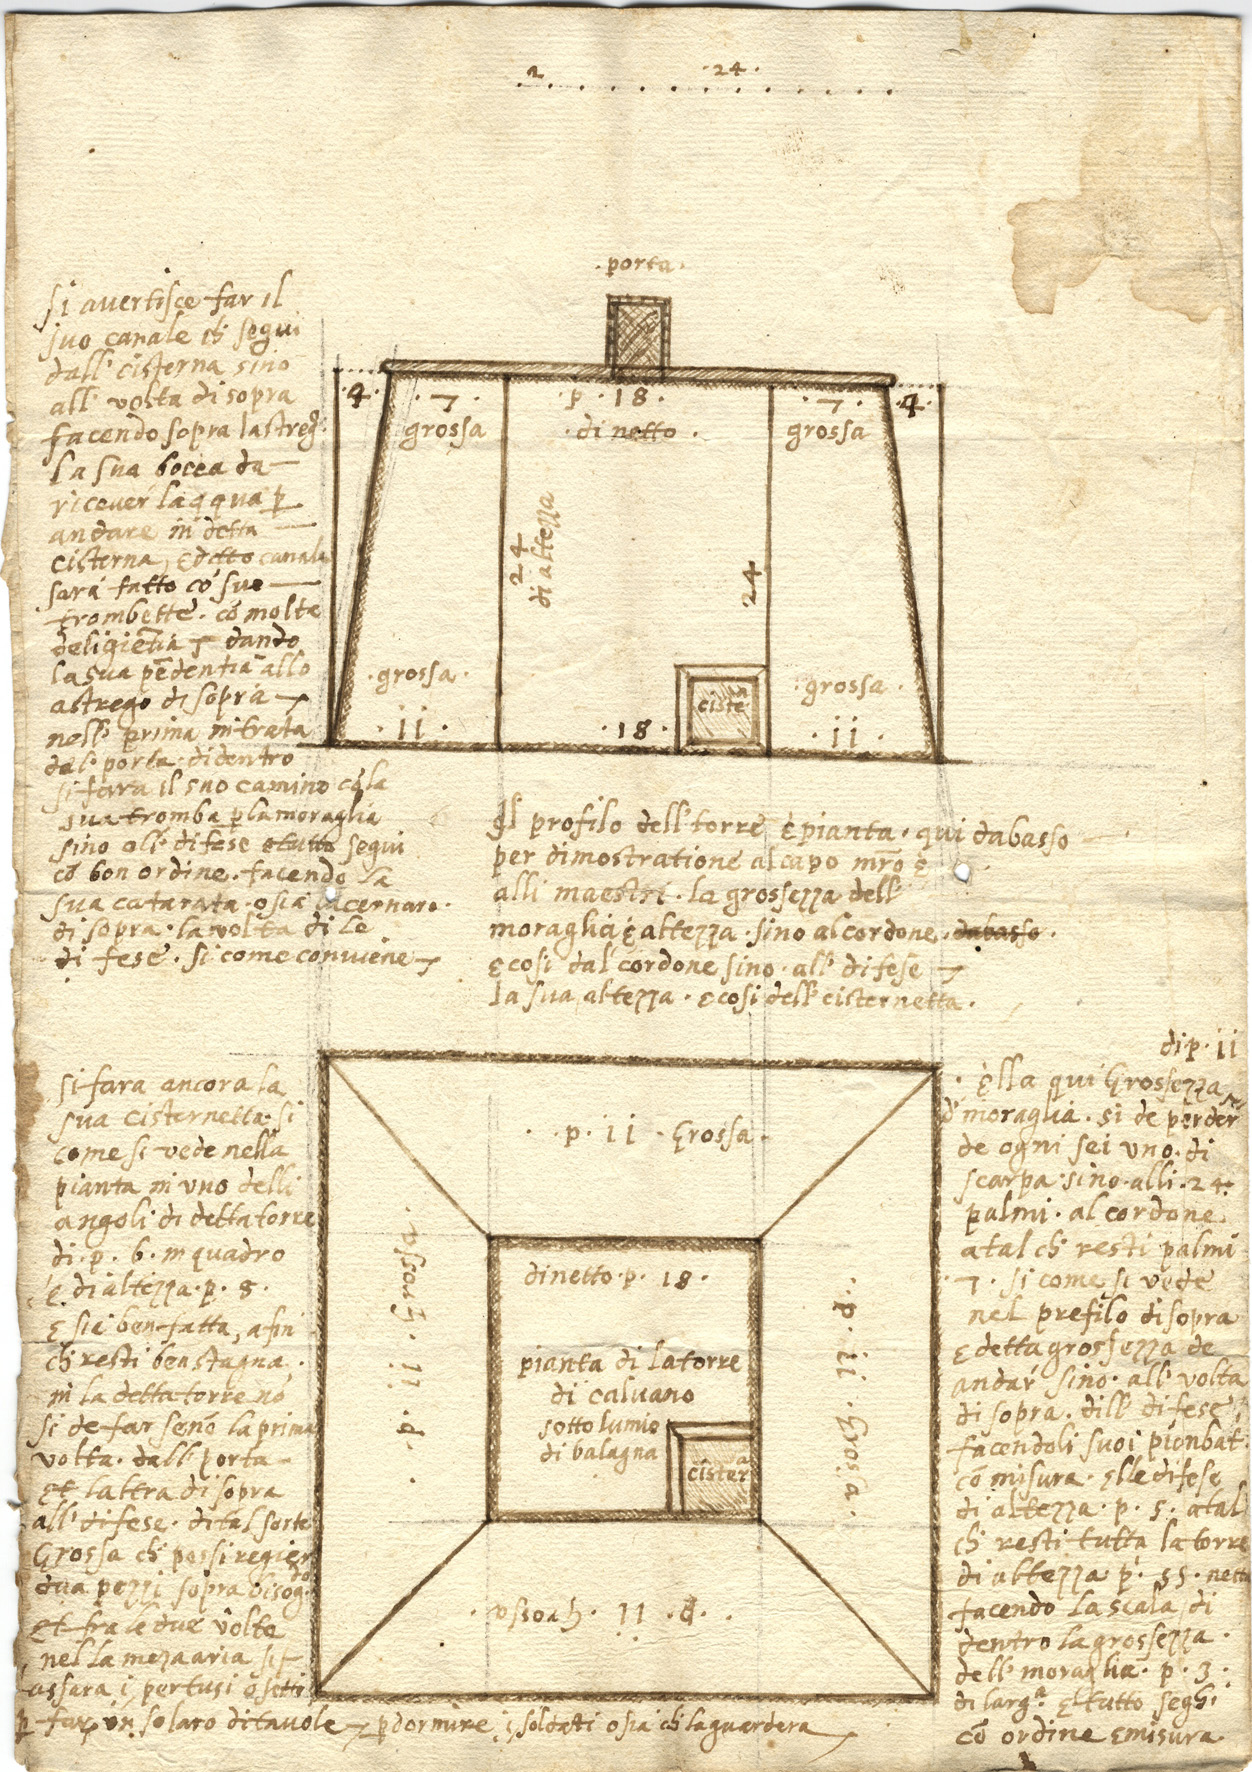 2 · 24 ·
· porta ·
si avertisce far il
suo canale ch' segui
dall' cisterna sino
all' volta di sopra
facendo sopra lastreg°
la sua bocca da
ricever' lacqua p
andare in detta
cisterna, e detto canale
sara fatto cō sue
trombette · cō molta
deligiētia dando
la sua pēdentia allo
astrego di sopra
nell' prima intrata
dal' porta · didentro
si fara il suo camino cō la
sua tromba p la moraglia
sino all' difese e tutto segui
cō bon ordine · facendo la
sua catarata · o sia lucernaro ·
di sopra · la volta di le
difese · si come conviene
· 4 ·
· 7 ·
grossa
p · 18 ·
· di netto ·
· 7 ·
grossa
· 4 ·
24
di altezza
24
· grossa ·
· 11 ·
· 18 ·
cisterª
· grossa ·
· 11 ·
Il profilo dell' torre e pianta · qui dabasso
per dimostratione al capo mr̄o e
alli maestri · la grossezza dell'
moraglia e altezza · sino al cordone · dabasso ·
e cosi dal cordone sino · all' difese
la sua altezza · e cosi dell' cisternetta ·
Si fara ancora la
sua cisternetta · si
come si vede nella
pianta in uno delli
angoli di detta torre
di · p · 6 · in quadro
e di altezza · p · 8 ·
e sia ben fatta, a fin
ch' resti ben stagna ·
in la detta torre nō
si de far senō la prima
volta · dall' porta
et laltra di sopra
all' difese · di tal sorte
Grossa ch' possi regier
dua pezzi sopra bisog.do
et fra le due volte
nella meza aria si
lassara i pertusi o setti
p far un solaro di tavole p dormire i soldati o sia ch' la guardera
· p · 11 · Grossa ·
· p · 11 · Grossa ·
di netto · p · 18 ·
pianta di la torre
di calvano
sotto lumio
di balagna
cisterª
· p · 11 · Grossa ·
· p · 11 · Grossa ·
di p · 11
· e lla qui Grossezza
d' moraglia · si de perder
de ogni sei uno · di
scarpa · sino · alli · 24 ·
palmi · al cordone
a tal ch' resti palmi
· 7 · si come si vede
nel profilo di sopra
e detta grossezza de
andar' sino · all' volta
di sopra · dill' difese
facendoli suoi pionbat.
cō misura · e lle difese
di altezza · p · 5 · a tal
ch' resti tutta la torre
di altezza p · 55 · netta
facendo la scala di
dentro la grossezza ·
dell' moraglia · p · 3 ·
di larg.ª e tutto seghi
cō ordine e misura